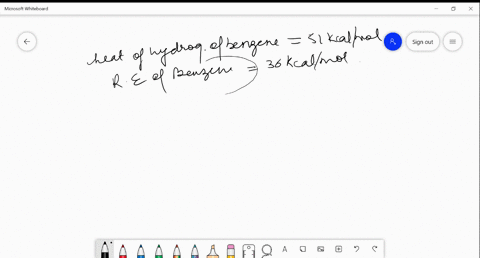 Microsoft Whiteboard
Sign out
heat of hydrog. of benzene = 51 kcal/mol
R.E of Benzene = 36 kcal/mol